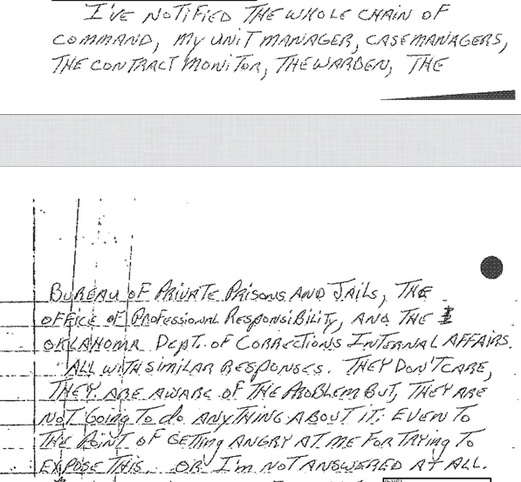 I'VE NOTIFIED THE WHOLE CHAIN OF
COMMAND, MY UNIT MANAGER, CASEMANAGERS,
THE CONTRACT MONITOR, THE WARDEN, THE
BUREAU OF PRIVATE PRISONS AND JAILS, THE
OFFICE OF PROFESSIONAL RESPONSIBILITY, AND THE
OKLAHOMA DEPT. OF CORRECTIONS INTERNAL AFFAIRS.
ALL WITH SIMILAR RESPONSES. THEY DON'T CARE,
THEY ARE AWARE OF THE PROBLEM BUT, THEY ARE
NOT GOING TO DO ANYTHING ABOUT IT. EVEN TO
THE POINT OF GETTING ANGRY AT ME FOR TRYING TO
EXPOSE THIS. OR I'M NOT ANSWERED AT ALL.